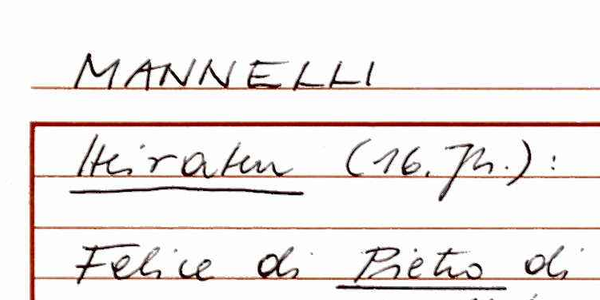 MANNELLI
Heiraten (16. Jh.):
Felice di Pietro di